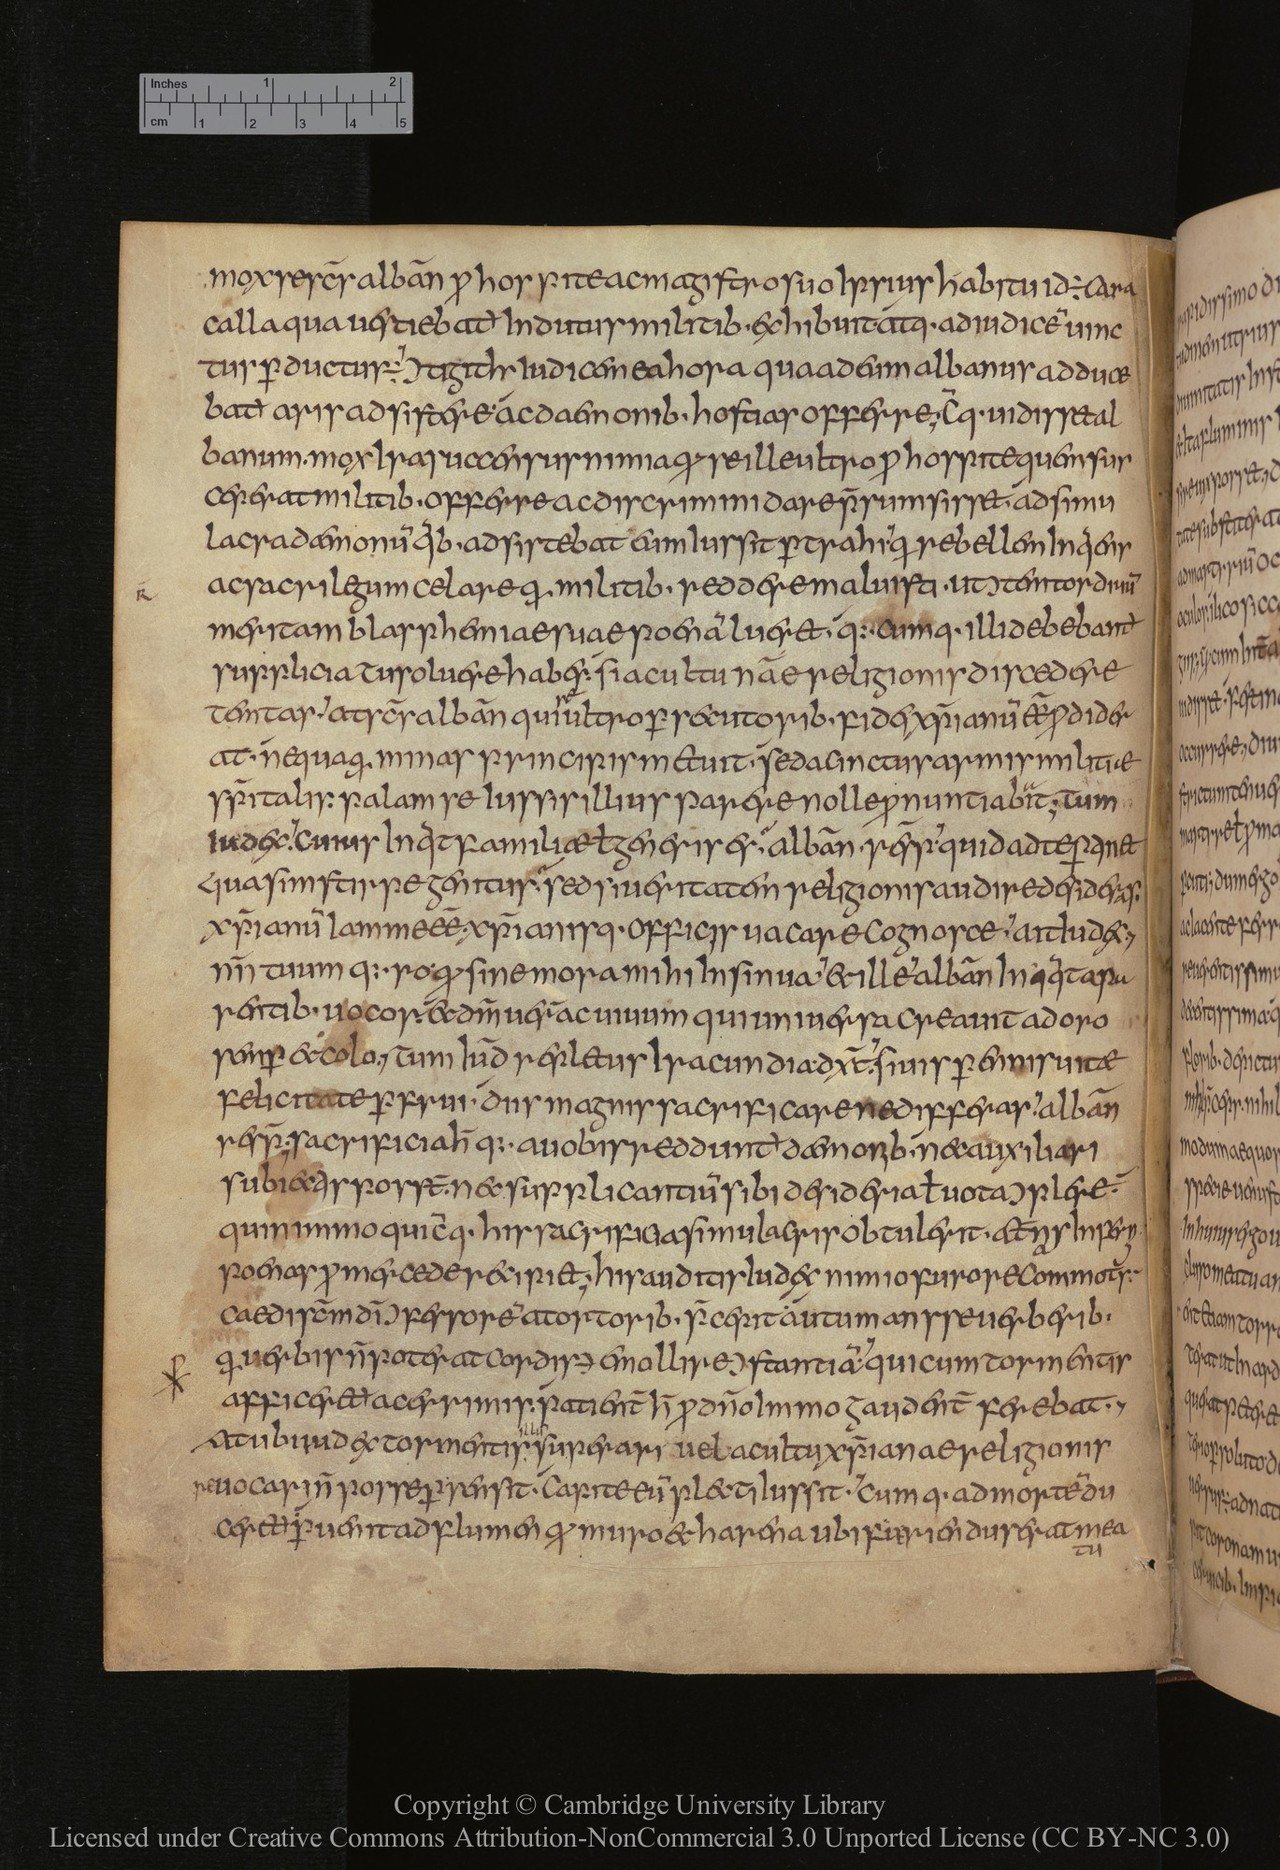 Inches 1 2
cm 1 2 3 4 5
mox se sc̄s albān ꝓ hospite ac magistro suo ipsius habitu id ÷ cara
calla qua uestiebat̄ indutus militib· exhibuit atq· ad iudicē uinc
tus ꝑductus ÷ Ↄtigit h̄ iudicem ea hora qua ad eum albanus adduce
bat̄ aris adsistere ac daemonib· hostias offerre, Cq· uidisset al
banum· mox ira succensus nimia qđ se ille ultro ꝓ hospite quem sus
ceperat militib· offerre ac discrimini dare p̄sumsisset· ad simu
lacra daemonū q̇b· adsistebat eum iussit ꝑtrahi q̄ rebellem inq̇ens
ac sacrilegum celare q̄ militib· reddere maluisti· ut Ↄtemtor diuū
meritam blasphemiae suae poenā lueret· q:· cumq· illi debebant̄
supplicia tu soluere habes· si a cultu nr̄ae religionis discedere
temtas· at sc̄s albān qui se ultro ꝑsecutorib· fidei xp̄ianū eē ꝓdider
at· nequaq̄ minas principis metuit· sed accinctus armis militiae
sp̄italis· palam se iussis illius parere nolle ꝓnuntiabat; Tum
iudex· Cuius inq̇t familiae ł generis es· albān resp̄· quid ad te ꝑtinet
qua sim stirpe genitus· sed si ueritatem religionis audire desideras·
xp̄ianū iam me eē· xp̄ianisq· officiis uacare cognosce· ait iudex,
nn̄ tuum q:· ro qđ sine mora mihi insinua· & ille albān inq̇t a pa
rentib· uocor· & dm̄ uerū ac uiuum qui uniuersa creauit adoro
semꝑ & colo, Tum iud̄ repletus iracundia dix̄· si uis ꝑennis uitae
felicitate ꝑfrui· diis magnis sacrificare ne differas· albān
resp̄· sacrificia h̄ q:· a uobis reddunt̄ daemonib· nec auxiliari
subiectis poss̄t· nec supplicantiū sibi desideria ł uota Ↄplere·
quin immo quicq· his sacrificia simulacris obtulerit· aeternas inferni
poenas ꝓ mercede recipiet; his auditis iudex nimio furore commotus·
caedi sc̄m dī Ↄfessorē a tortorib· p̄cepit autumans se uerberib·
q̄ uerbis n̄ poterat cordis ei· emollire Ↄstantiā· qui cum tormentis
afficeret̄ acerrimis· patient̄ h̄ ꝓ dn̄o immo gaudent̄ ferebat·,
At ubi iudex tormentis illū superari uel a cultu xp̄ianae religionis
reuocari n̄ posse ꝑsensit· Capite eū plecti iussit· Cumq· ad mortē du
ceret̄ ꝑuenit ad flumen qđ muro & harena ubi feriendus erat mea
tu
Copyright © Cambridge University Library
Licensed under Creative Commons Attribution-NonCommercial 3.0 Unported License (CC BY-NC 3.0)